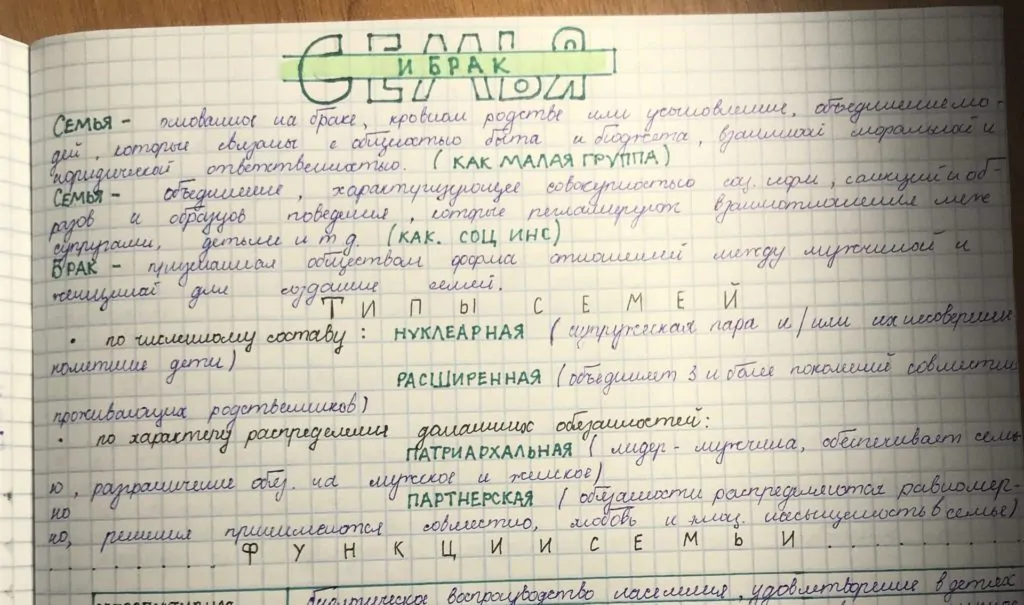 СЕМЬЯ
И БРАК
СЕМЬЯ - основанное на браке, кровном родстве или усыновлении, объединение лю-
дей, которые связаны с общностью быта и бюджета, взаимной моральной и
юридической ответственностью. (КАК МАЛАЯ ГРУППА)
СЕМЬЯ - объединение, характеризующее совокупностью соц. норм, санкций и об-
разов и образцов поведения, которые регламируют взаимоотношения меж
супругами, детьми и т д. (КАК. СОЦ ИНС)
БРАК - признанная обществом форма отношений между мужчиной и
женщиной для создания семей.
ТИПЫ СЕМЕЙ
• по численному составу: НУКЛЕАРНАЯ (супружеская пара и/или их несовершен
нолетние дети)
РАСШИРЕННАЯ (объединяет 3 и более поколений совместно
проживающих родственников)
• по характеру распределения домашних обязанностей:
ПАТРИАРХАЛЬНАЯ (лидер - мужчина, обеспечивает семь
ю, разграничение обяз. на мужское и женское)
но ПАРТНЕРСКАЯ (обязаности распределяются равномер-
но, решения принимаются совместно, любовь и насыщеность в семье)
ФУНКЦИИ СЕМЬИ
биологическое воспроизводство населения, удовлетворение в детях